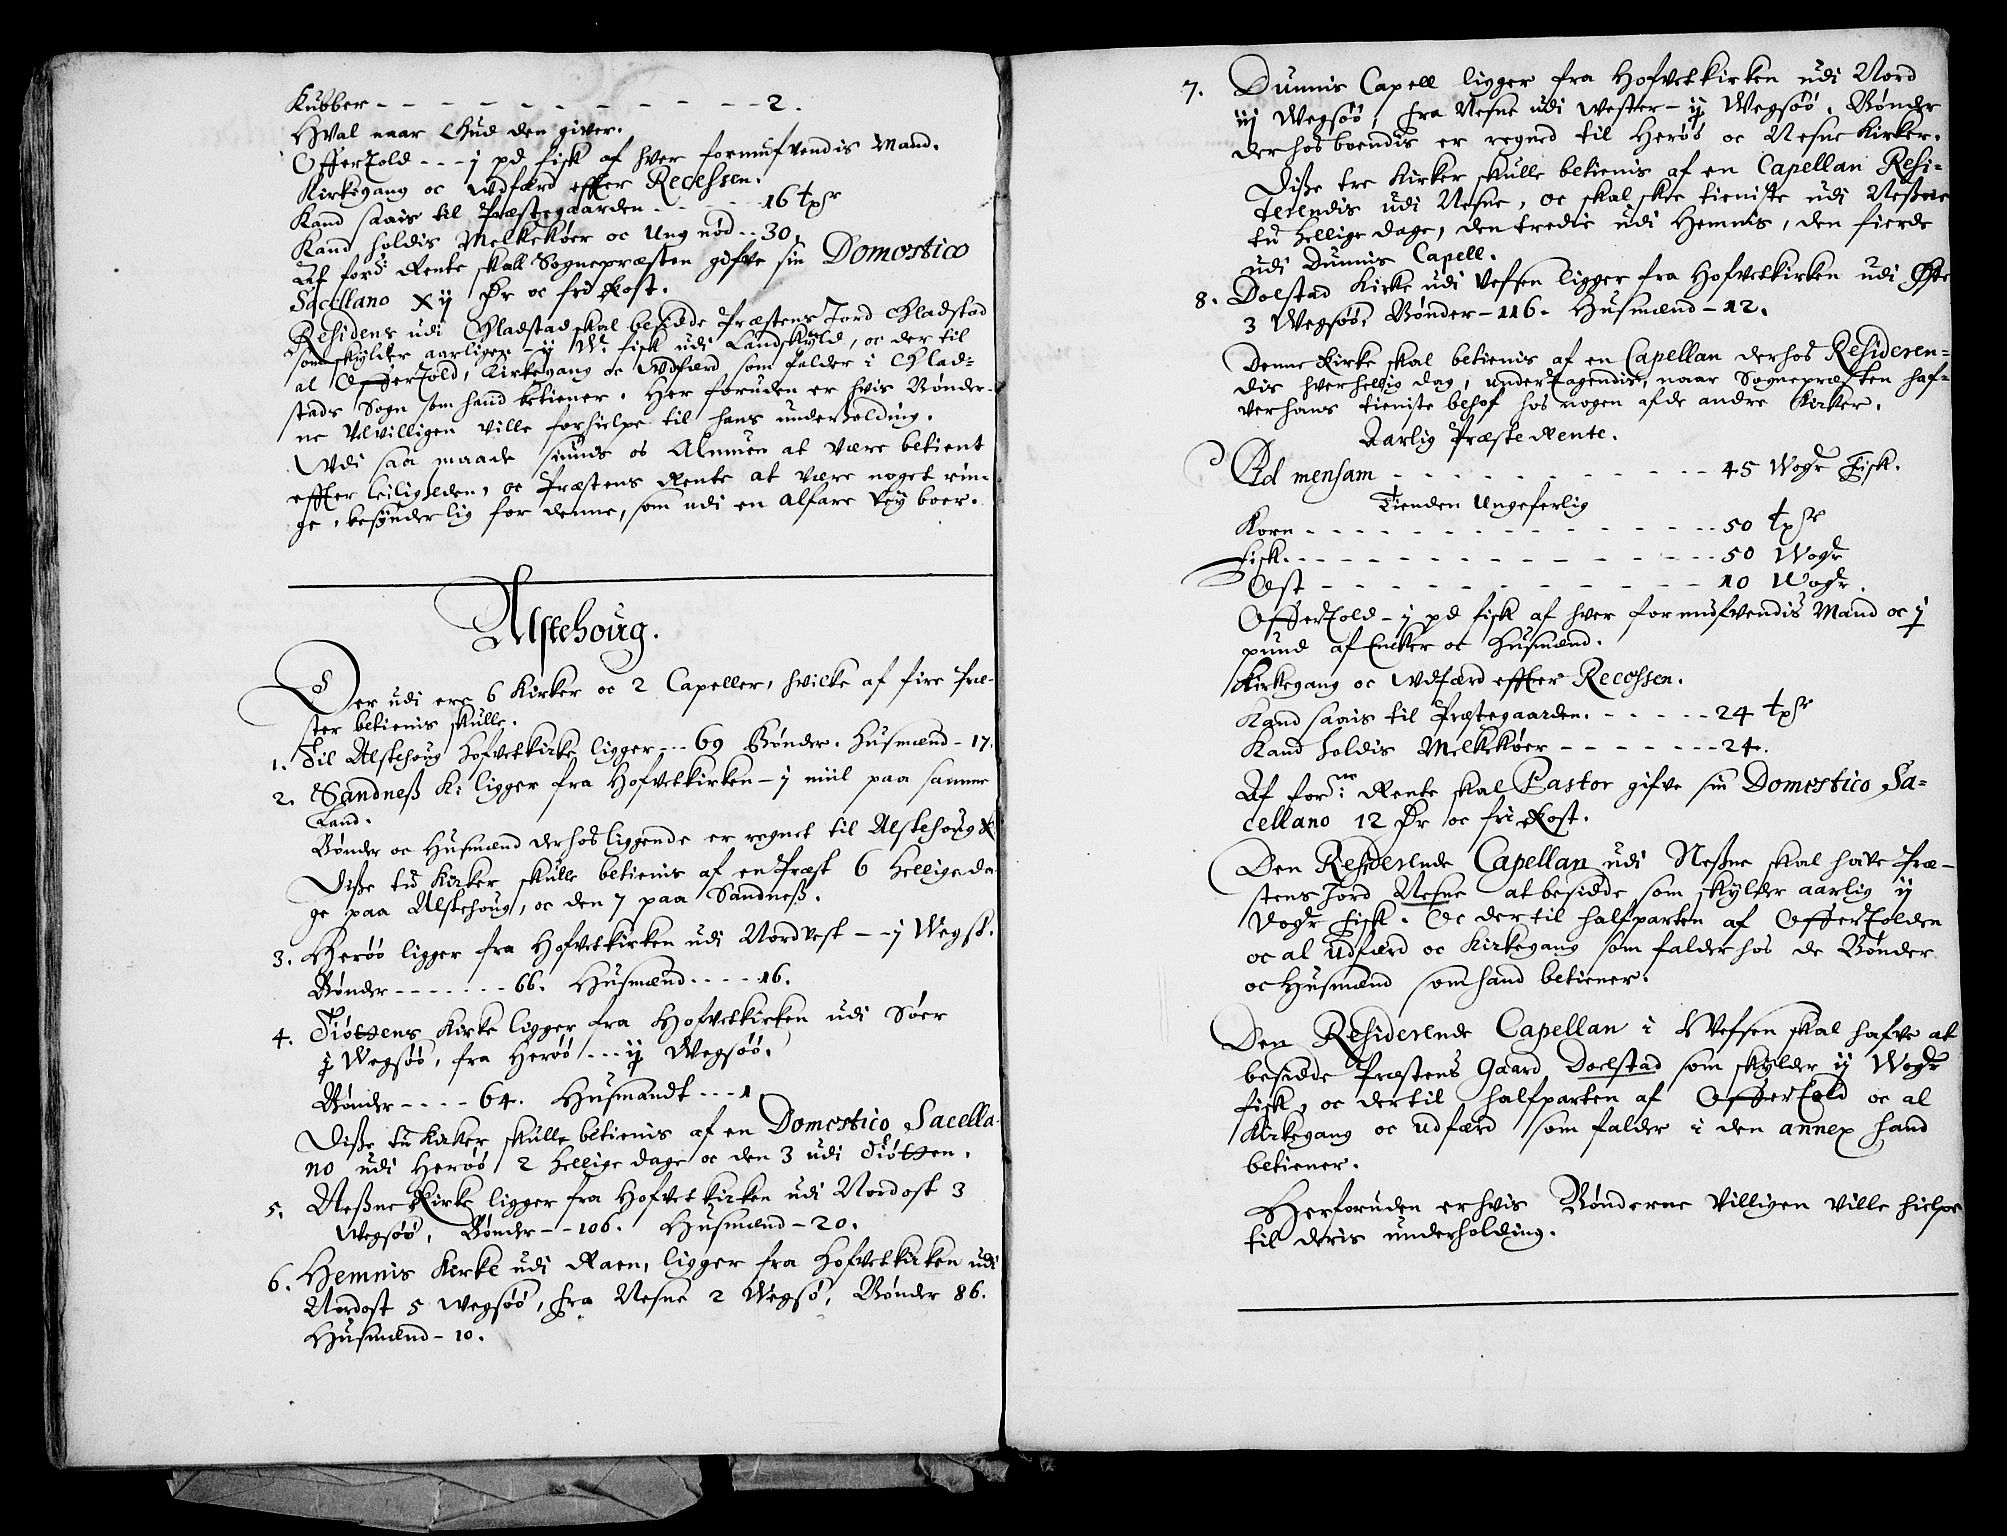 Kubber - - - - - - - - - - - - 2.
Hval naar Gud den giver.
OfferTold - - - j pd fisk af hver formufvendis Mand.
Kirkegang oc Udfærd effter Recessen.
Kand saais til Præstegaarden - - - - - 16 tpr
Kand holdis Melkekøer oc Ung nød - - 30.
Af ford Rente skall Sognepræsten gifve sin Domestico
Sacellano xij Dr oc fri Kost.
Residens udi Gladstad skal besidde Præstens Jord Gladstad
som skylder aarligen - ij W. fisk udi Landskyld, oc der til
al OfferTold, Kirkegang oc Udfærd som falder i Glad-
stads Sogn som hand betiener. Her foruden er hvis Bønder-
ne Velvilligen ville forhielpe til hans underholding.
Udi saa maade siunis os Almuen at være betient
effter leiligheden, oc Præstens Rente at være noget rin-
ge, besønderlig for denne, som udi en alfare vey boer.
Alstehoug.
Der udi ere 6 Kirker oc 2 Capeller, hvilke af fire Præ-
ster betienis skulle.
1. Til Alstehoug Hofvetkirke ligger - - 69 Bønder. Husmænd - 17.
2. Sandneß K: ligger fra Hofvetkirken - j miil paa samme
Land.
Bønder oc Husmænd derhos liggende er regnet til Alstehoug K
Disse tu Kirker skulle betienis af en Præst 6 hellige da-
ge paa Alstehoug, oc den 7 paa Sandneß.
3. Herøö ligger fra Hofvetkirken udi Nordvest - - j Wegsø.
Bønder - - - - - - - 66. Husmænd - - - - 16.
4. Tiøttens Kirke ligger fra Hofvetkirken udi Søer
j Wegsøö, fra Herøö - - - ij Wegsøö.
Bønder - - - - 64. Husmandt - - - 1.
Disse tu Kirker skulle betienis af en Domestico Sacella-
no udi Herøö 2 hellige dage oc den 3 udi Tiøtten.
5. Neßne Kirke ligger fra Hofvetkirken udi Nordost 3
Wegsøö, Bønder - - 106. Husmænd - 20.
6. Hemnis Kirke udi Raen, ligger fra Hofvetkirken udi
Nordost 5 wegsøö, fra Nesne 2 Wegsø, Bønder 86.
Husmænd - 10.
7. Dunnis Capell ligger fra Hofvetkirken udi Nord
iij Wegsøö, fra Nesne udi wester - ij Wegsøö. Bønder
derhos boendis er regned til Herøö oc Nesne Kirker.
Disse tre Kirker skulle betienis af en Capellan Resi-
terendis udi Nesne, oc skal skee tieniste udi Neßne
tu hellige dage, den tredie udi Hemnis, den fierde
udi Dunnis Capell.
8. Dolstad Kirke udi Vefsen ligger fra Hofvetkirken udi Øste
3 Wegsøö, Bønder - 116. Husmænd - 12.
Denne Kirke skal betienis af en Capellan derhos Resideren-
dis hver hellig dag, undertagendis, naar Sognepræsten haf-
ver hans tieniste behof hos nogen af de andre Kirker.
Aarlig Præste Rente.
Ad mensam - - - - - - - - - - - - 45 Wogr Fisk.
Tienden Ungeferlig
Korn - - - - - - - - - - - - - - - - 50 tpr
Fisk - - - - - - - - - - - - - - - - 50 Wogr
Ost - - - - - - - - - - - - - - - 10 Wogr.
OfferTold - j pd fisk af hver formufvendis Mand oc j
pund af Encker oc Husmænd.
Kirkegang oc Udfærd effter Recessen.
Kand saais til Præstegaarden. - - - - - 24 tpr
Kand holdis Melkekøer - - - - - - - - 24.
Af forne: Rente skal Pastor gifve sin Domestico Sa-
cellano 12 Dr oc fri Kost.
Den Residerende Capellan udi Neßne skal have Præ-
stens Jord Nesne at besidde som skylder aarlig ij
Vogr Fisk. Oc der til halfparten af OfferTolden
oc al Udfærd oc Kirkegang som falder hos de Bønder
oc Husmænd som hand betiener.
Den Residerende Capellan i Wefsen skal hafve at
besidde Præstens Gaard Doelstad som skylder ij Wogr
fisk, oc dertil halfparten af OfferTold oc al
Kirkegang oc udfærd som falder i den annex hand
betiener.
Herforuden er hvis Bønderne Villigen ville hielpe
til deris underholding.